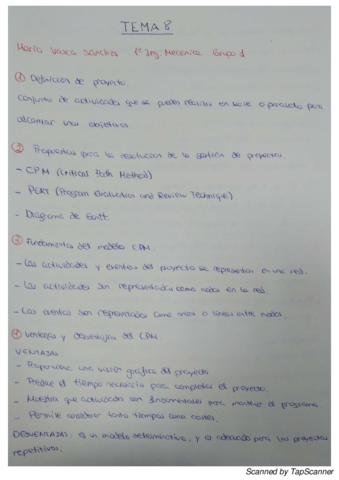 TEMA 8
María Vasco Sánchez 1º Ing. Mecánica Grupo 1
① Definición de proyecto.
Conjunto de actividades que se pueden realizar en serie o paralelo para
alcanzar unos objetivos.
② Propuestas para la resolución de la gestión de proyectos
- CPM (Critical Path Method)
- PERT (Program Evaluation and Review Technique)
- Diagrama de Gantt.
③ Fundamentos del modelo CPM.
- Las actividades y eventos del proyecto se representan en una red.
- Las actividades son representadas como nodos en la red.
- Los eventos son representados como arcos o líneas entre nodos.
④ Ventajas y desventajas del CPM.
VENTAJAS
- Proporciona una visión gráfica del proyecto
- Predice el tiempo necesario para completar el proyecto.
- Muestra que actividades son fundamentales para mantener el programa
- Permite considerar tanto tiempos como costes.
DESVENTAJAS: es un modelo determinístico, y es adecuado para los proyectos
repetitivos.
Scanned by TapScanner